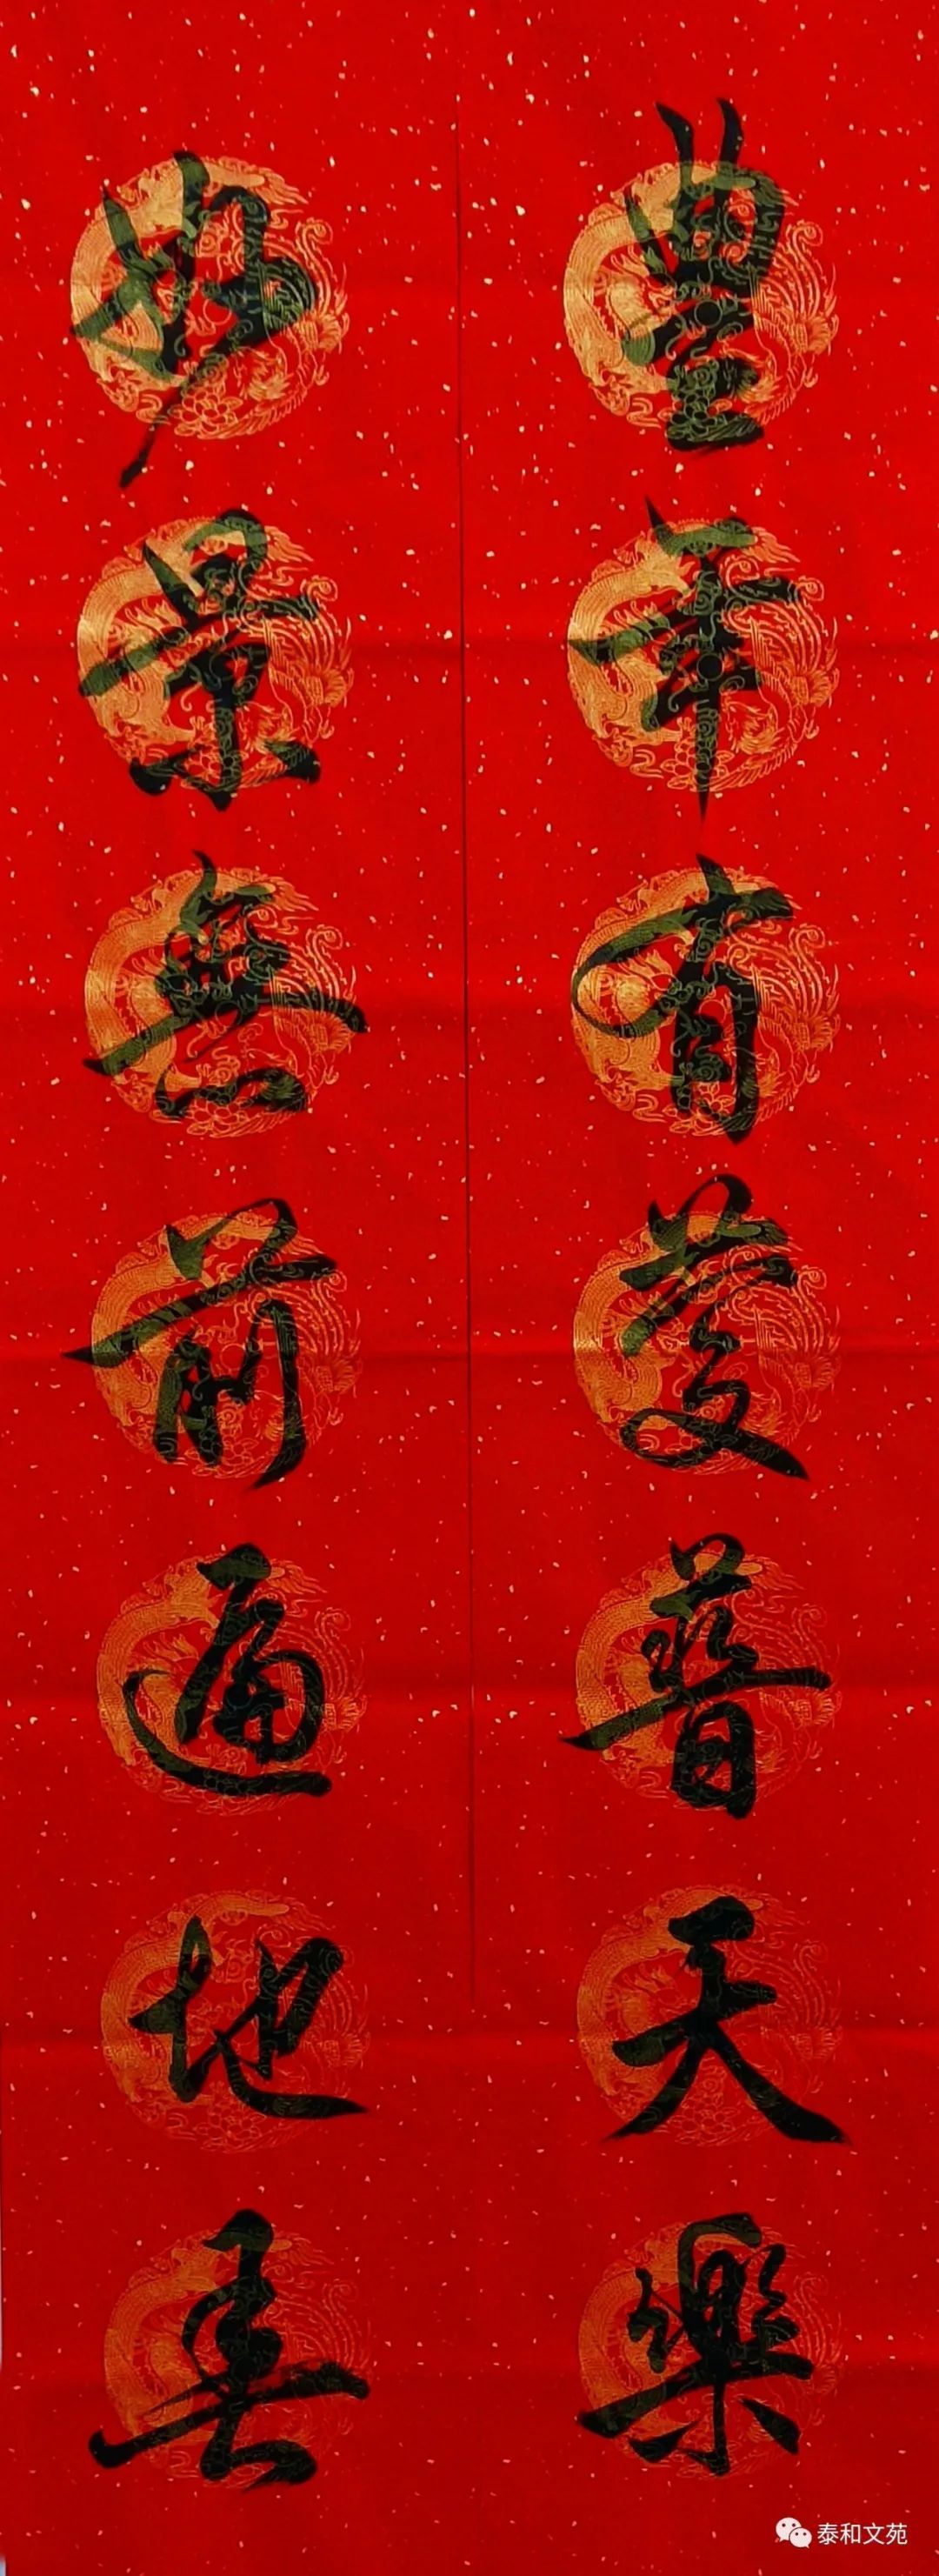 豐年有慶普天樂
妙景無前遍地春
泰和文苑